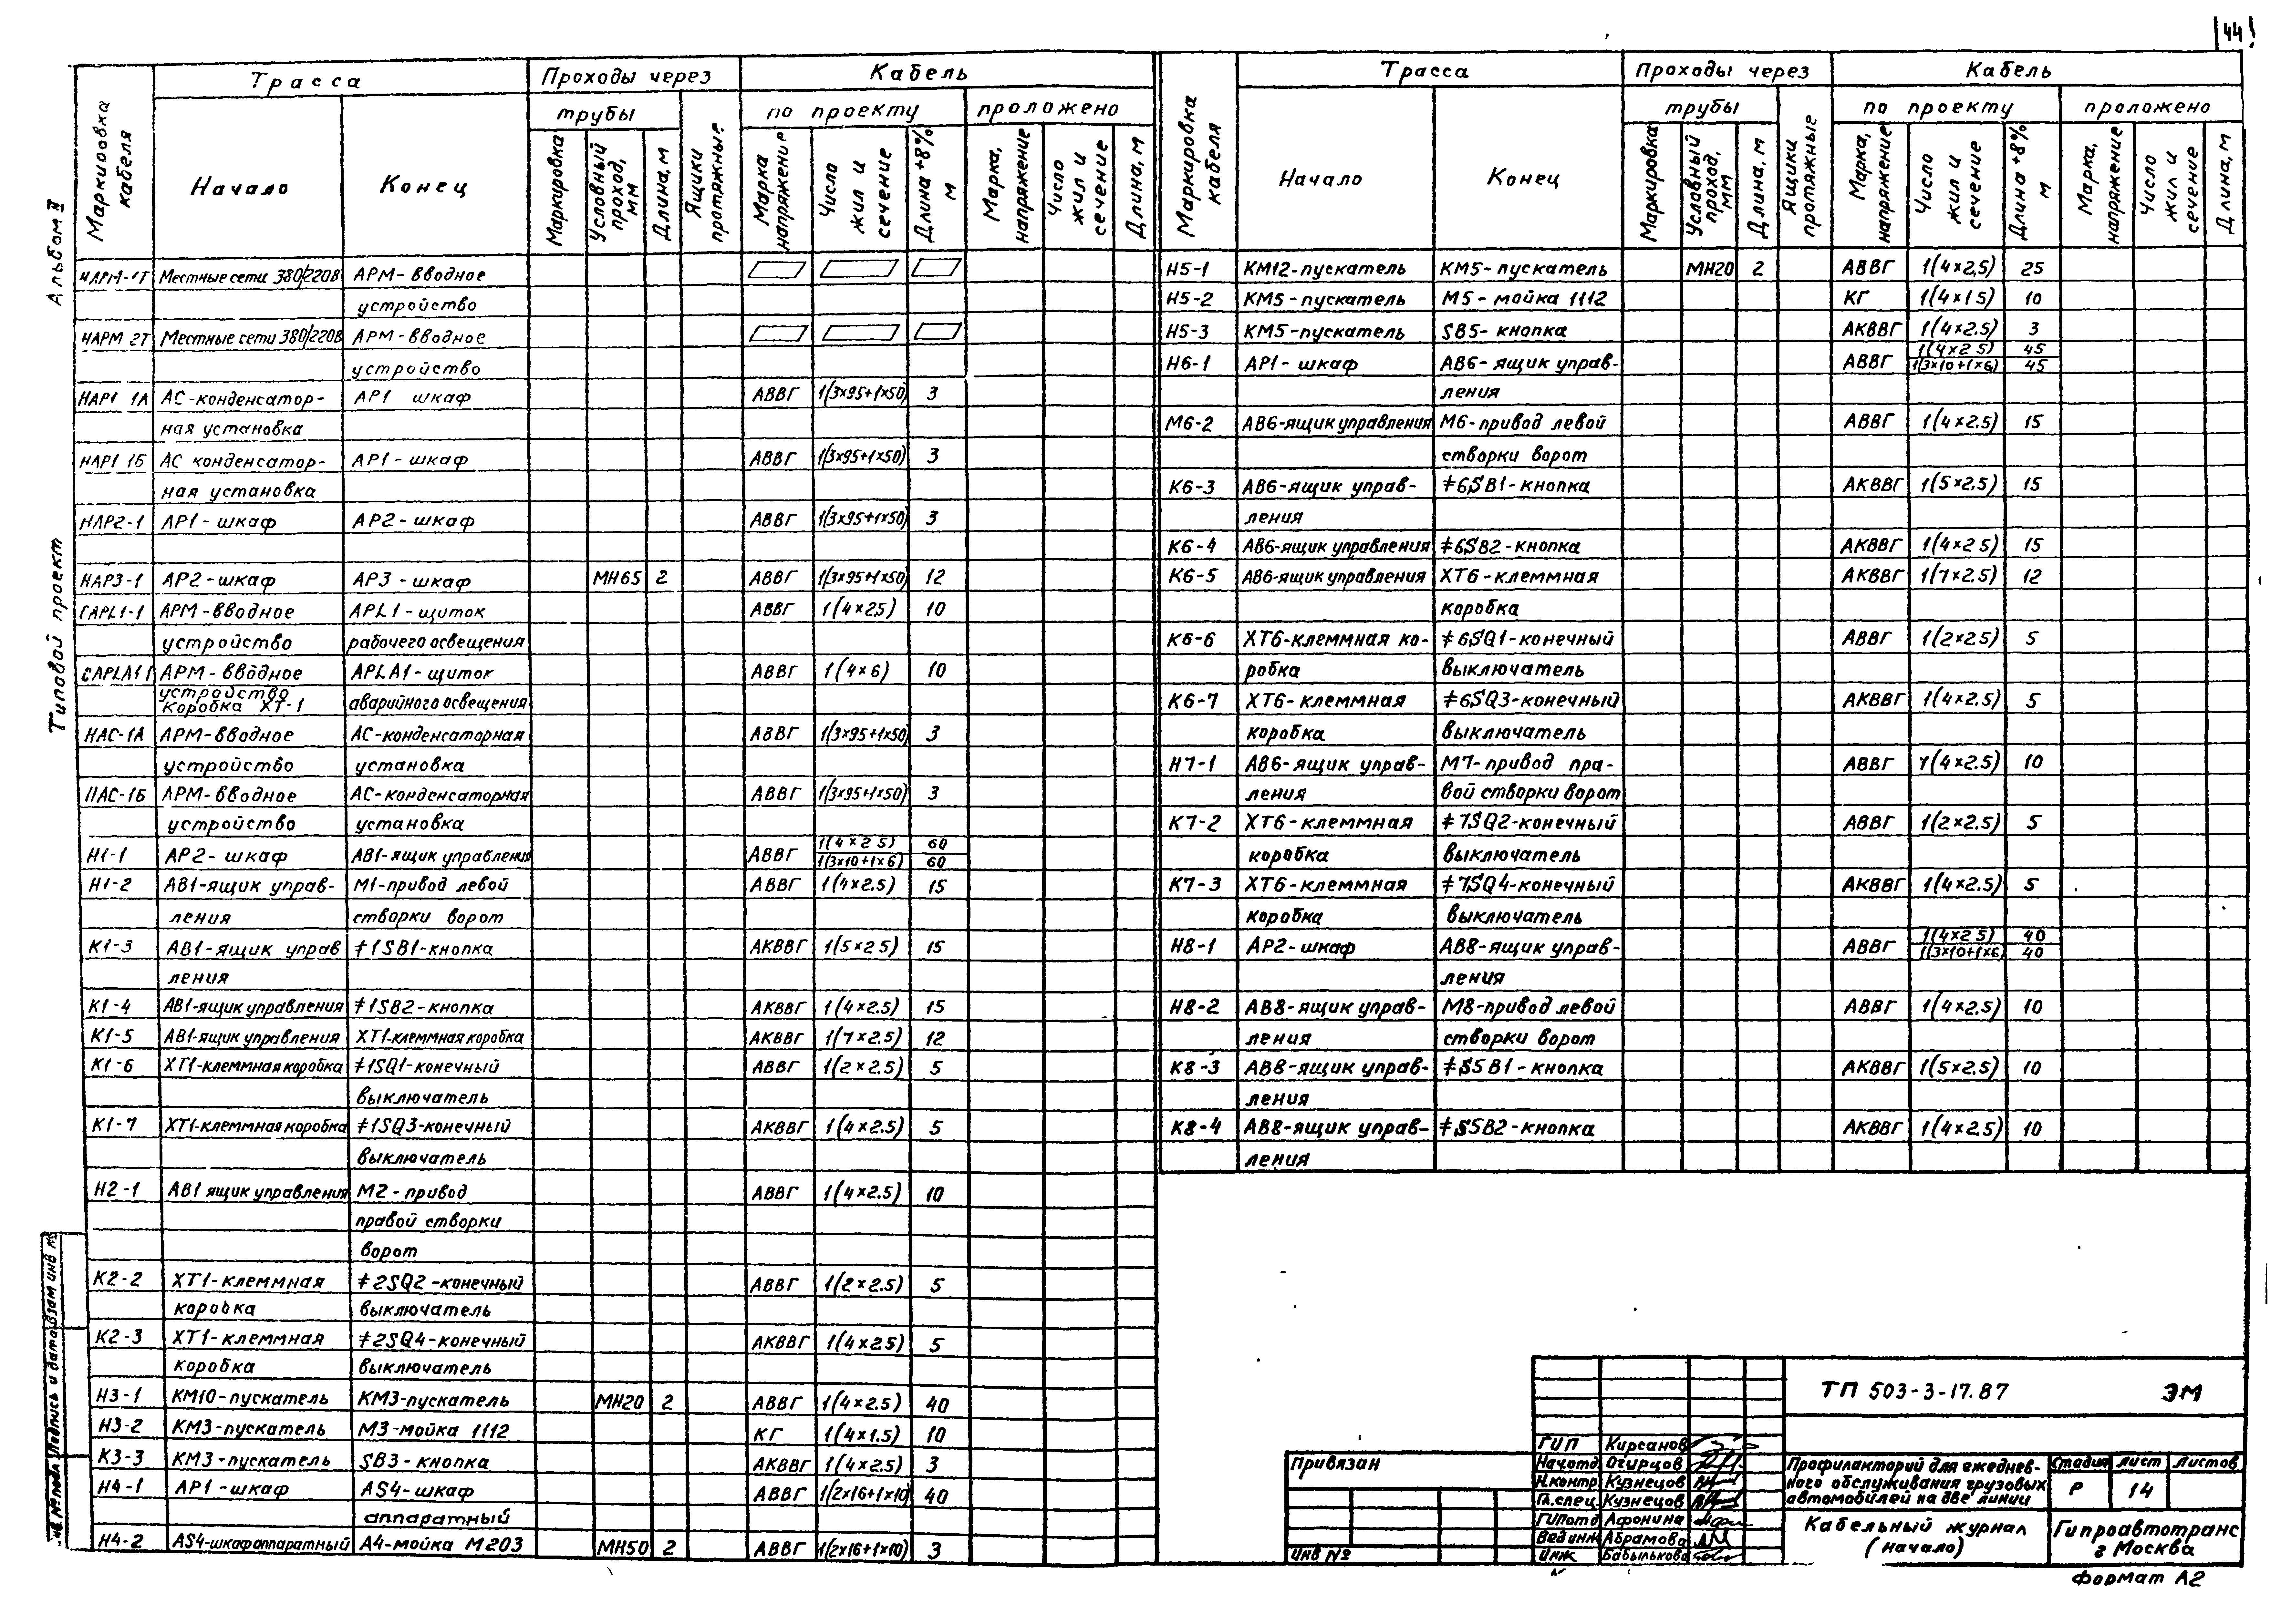 44
Альбом II
Типовой проект
Маркировка кабеля
Трасса
Проходы через
Кабель
трубы
Ящики протяжные
по проекту
проложено
Начало
Конец
Маркировка
Условный проход, мм
Длина, м
Марка напряжение
Число жил и сечение
Длина +8% м
Марка, напряжение
Число жил и сечение
Длина, м
НАРМ-1Т Местные сети 380/220В АРМ-вводное
устройство
НАРМ 2Т Местные сети 380/220В АРМ-вводное
устройство
НАР1 1А АС-конденсатор- АР1 шкаф АВВГ 1(3×95+1×50) 3
ная установка
НАР1 1Б АС конденсатор- АР1-шкаф АВВГ 1(3×95+1×50) 3
ная установка
НАР2-1 АР1-шкаф АР2-шкаф АВВГ 1(3×95+1×50) 3
НАР3-1 АР2-шкаф АР3-шкаф МН65 2 АВВГ 1(3×95+1×50) 12
АРМ-вводное АРL1-щиток АВВГ 1(4×25) 10
устройство рабочего освещения
АРМ-вводное АРLА1-щиток АВВГ 1(4×6) 10
устройство
коробка ХТ-1 аварийного освещения
НАС-1А АРМ-вводное АС-конденсаторная АВВГ 1(3×95+1×50) 3
устройство установка
НАС-1Б АРМ-вводное АС-конденсаторная АВВГ 1(3×95+1×50) 3
устройство установка
Н1-1 АР2-шкаф АВ1-ящик управления АВВГ 1(4×2 5) 60
1(3×10+1×6) 60
Н1-2 АВ1-ящик управ- М1-привод левой АВВГ 1(4×2.5) 15
ления створки ворот
К1-3 АВ1-ящик управ ≠1SB1-кнопка АКВВГ 1(5×2 5) 15
ления
К1-4 АВ1-ящик управления ≠1SB2-кнопка АКВВГ 1(4×2.5) 15
К1-5 АВ1-ящик управления ХТ1-клеммная коробка АКВВГ 1(7×2.5) 12
К1-6 ХТ1-клеммная коробка ≠1SQ1-конечный АВВГ 1(2×2.5) 5
выключатель
К1-7 ХТ1-клеммная коробка ≠1SQ3-конечный АКВВГ 1(4×2.5) 5
выключатель
Н2-1 АВ1 ящик управления М2-привод АВВГ 1(4×2.5) 10
правой створки
ворот
К2-2 ХТ1-клеммная ≠2SQ2-конечный АВВГ 1(2×2.5) 5
коробка выключатель
К2-3 ХТ1-клеммная ≠2SQ4-конечный АКВВГ 1(4×2 5) 5
коробка выключатель
Н3-1 КМ10-пускатель КМ3-пускатель МН20 2 АВВГ 1(4×2.5) 40
Н3-2 КМ3-пускатель М3-мойка 1112 КГ 1(4×1.5) 10
К3-3 КМ3-пускатель SB3-кнопка АКВВГ 1(4×2.5) 3
Н4-1 АР1-шкаф АS4-шкаф АВВГ 1(2×16+1×10) 40
аппаратный
Н4-2 АS4-шкаф аппаратный А4-мойка М203 МН50 2 АВВГ 1(2×16+1×10) 3
Маркировка кабеля
Трасса
Проходы через
Кабель
трубы
Ящики протяжные
по проекту
проложено
Начало
Конец
Маркировка
Условный проход, мм
Длина, м
Марка, напряжение
Число жил и сечение
Длина +8% м
Марка, напряжение
Число жил и сечение
Длина, м
Н5-1 КМ12-пускатель КМ5-пускатель МН20 2 АВВГ 1(4×2,5) 25
Н5-2 КМ5-пускатель М5-мойка 1112 КГ 1(4×1 5) 10
Н5-3 КМ5-пускатель SB5-кнопка АКВВГ 1(4×2.5) 3
Н6-1 АР1-шкаф АВ6-ящик управ- АВВГ 1(4×2 5) 45
1(3×10+1×6) 45
ления
М6-2 АВ6-ящик управления М6-привод левой АВВГ 1(4×2.5) 15
створки ворот
К6-3 АВ6-ящик управ- ≠6SB1-кнопка АКВВГ 1(5×2.5) 15
ления
К6-4 АВ6-ящик управления ≠6SB2-кнопка АКВВГ 1(4×2 5) 15
К6-5 АВ6-ящик управления ХТ6-клеммная АКВВГ 1(7×2.5) 12
коробка
К6-6 ХТ6-клеммная ко- ≠6SQ1-конечный АВВГ 1(2×2.5) 5
робка выключатель
К6-7 ХТ6-клеммная ≠6SQ3-конечный АКВВГ 1(4×2.5) 5
коробка выключатель
Н7-1 АВ6-ящик управ- М7-привод пра- АВВГ 1(4×2.5) 10
ления вой створки ворот
К7-2 ХТ6-клеммная ≠7SQ2-конечный АВВГ 1(2×2.5) 5
коробка выключатель
К7-3 ХТ6-клеммная ≠7SQ4-конечный АКВВГ 1(4×2.5) 5
коробка выключатель
Н8-1 АР2-шкаф АВ8-ящик управ- АВВГ 1(4×2 5) 40
1(3×10+1×6) 40
ления
Н8-2 АВ8-ящик управ- М8-привод левой АВВГ 1(4×2.5) 10
ления створки ворот
К8-3 АВ8-ящик управ- ≠S5B1-кнопка АКВВГ 1(5×2.5) 10
ления
К8-4 АВ8-ящик управ- ≠S5B2-кнопка АКВВГ 1(4×2.5) 10
ления
Взам инв №
Подпись и дата
Привязан
Инв №
ТП 503-3-17.87 ЭМ
ГИП Кирсанов
Нач.отд Огирцов
Н.контр Кузнецов
Гл.спец. Кузнецов
ГИПотд Афонина
Вед инж Абрамова
Инж Бабылькова
Профилакторий для ежеднев-
ного обслуживания грузовых
автомобилей на две линии
Стадия Лист Листов
Р 14
Кабельный журнал
(начало)
Гипроавтотранс
г Москва
Формат А2